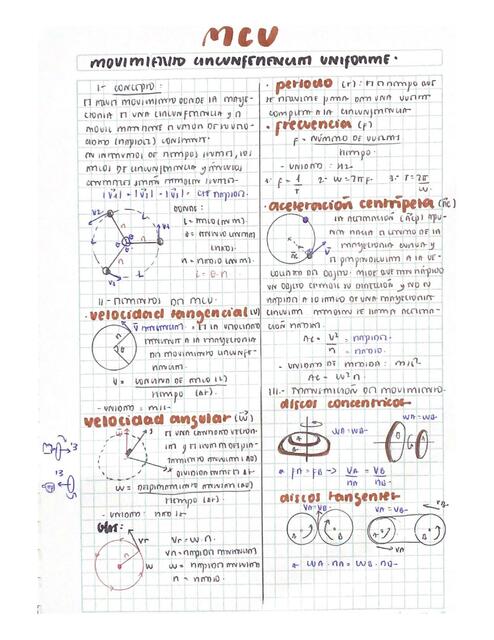 MCU
MOVIMIENTO CIRCUNFERENCIAL UNIFORME.
I- CONCEPTO:
ES AQUEL MOVIMIENTO DONDE LA TRAYEC-
TORIA ES UNA CIRCUNFERENCIA Y EL
MÓVIL MANTIENE EL
(RAPIDEZ) CONSTANTE
EN INTERVALOS DE TIEMPOS IGUALES, LOS
ARCOS DE CIRCUNFERENCIA Y ÁNGULOS
CENTRALES SERÁN TAMBIÉN IGUALES.
|V1| = |V2| = |V3| = CTE RAPIDEZ.
V2
L
DONDE:
L = ARCO (M)
θ = ÁNGULO
(RAD).
R = RADIO (M)
L = θ·R
V1
V3
II- ELEMENTOS DEL MCU.
· velocidad tangencial (V)
V TANGENCIAL
ES LA VELOCIDAD
TANGENTE A LA TRAYECTORIA
DEL MOVIMIENTO CIRCUNFE-
RENCIAL.
V = LONGITUD DE ARCO (L)
TIEMPO (Δt).
- UNIDAD = M/S-
velocidad angular (W)
ES UNA CANTIDAD VECTOR-
IAL Y ES EL DESPLA-
ZAMIENTO ANGULAR (Δθ)
W = DESPLAZAMIENTO ANGULAR (Δθ)
TIEMPO (Δt).
- UNIDAD: RAD/S
Obs:
VT
VT = W·R.
VT = RAPIDEZ TANGENCIAL
W = RAPIDEZ ANGULAR
R = RADIO.
W
· periodo (T): ES EL TIEMPO QUE
SE REQUIERE PARA DAR UNA VUELTA
COMPLETA A LA CIRCUNFERENCIA.
· frecuencia (F)
F = NÚMERO DE VUELTAS
TIEMPO.
- UNIDAD: HZ-
1· F = 1/T 2· W = 2πF 3· T = 2π/W.
· aceleración centrípeta (ac)
LA ACELERACIÓN (ac) APUN-
TA HACIA EL CENTRO DE LA
TRAYECTORIA CURVA Y
ES PERPENDICULAR A LA VE-
LOCIDAD DEL OBJETO. MIDE QUE TAN RÁPIDO
UN OBJETO CAMBIA SU DIRECCIÓN Y NO SU
RAPIDEZ A LO LARGO DE UNA TRAYECTORIA
CIRCULAR. TAMBIÉN SE LLAMA ACELERA-
CIÓN RADIAL.
AC = V² = RAPIDEZ.
R = RADIO.
- UNIDAD DE MEDIDA: M/S²
AC = W²R
III.- TRANSMISIÓN DEL MOVIMIENTO.
discos concentricos
WA = WB-
WA = WB-
* FA = FB → VA/RA = VB/RB
discos tangentes
VA = VB-
VA = VB-
VB-
VA-
* WA·RA = WB·RB-